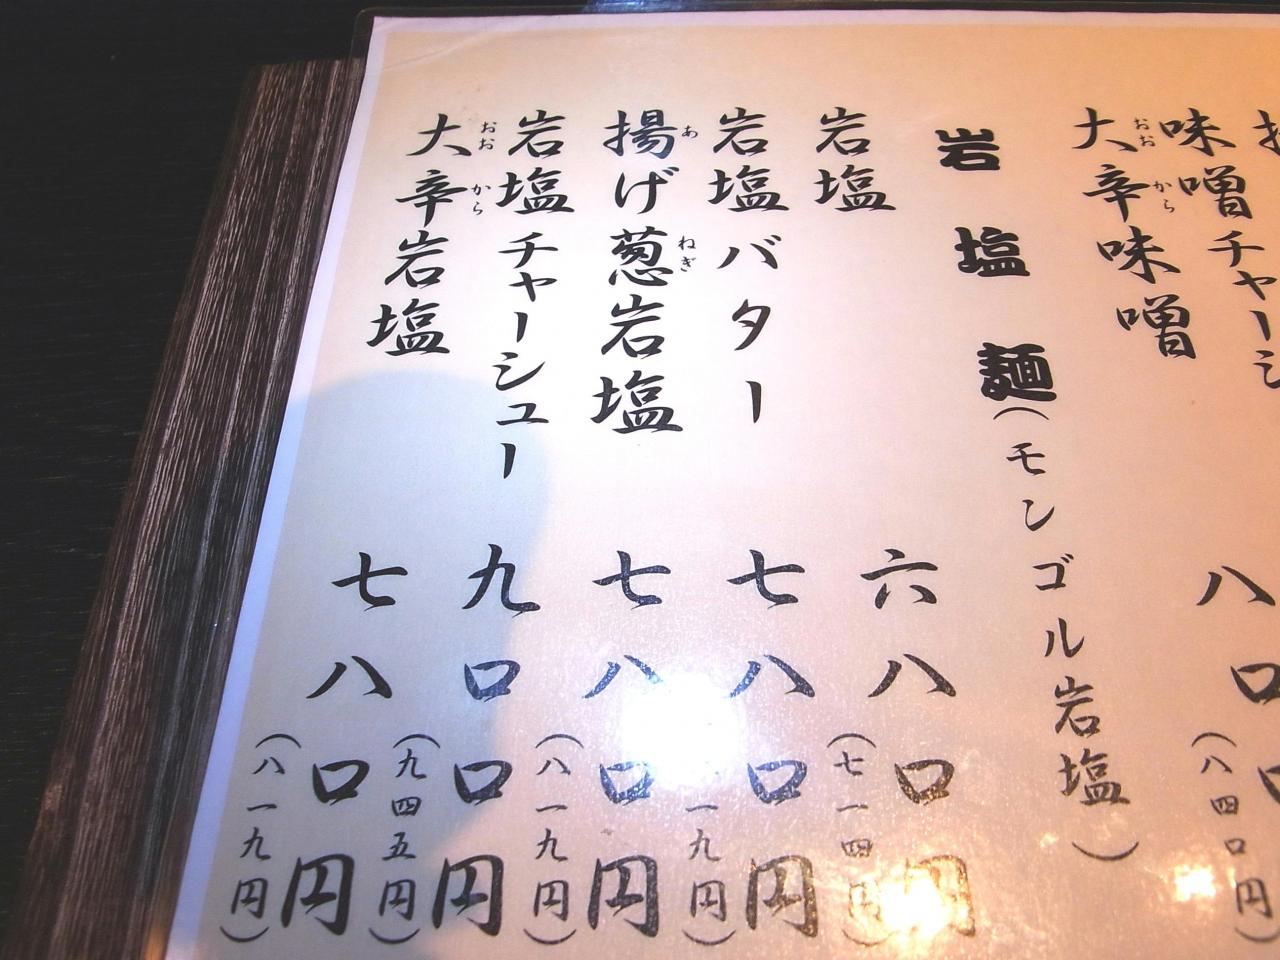 味噌チャーシ
八〇
（八四〇円
大辛味噌
おおから
岩塩麺（モンゴル岩塩）
岩塩
六八〇円
（七一四円）
岩塩バター
七八〇円
一九円）
揚げ葱岩塩
あ
ねぎ
七八〇円
（八一九円）
岩塩チャーシュー
九〇〇円
（九四五円）
大辛岩塩
おおから
七八〇円
（八一九円）